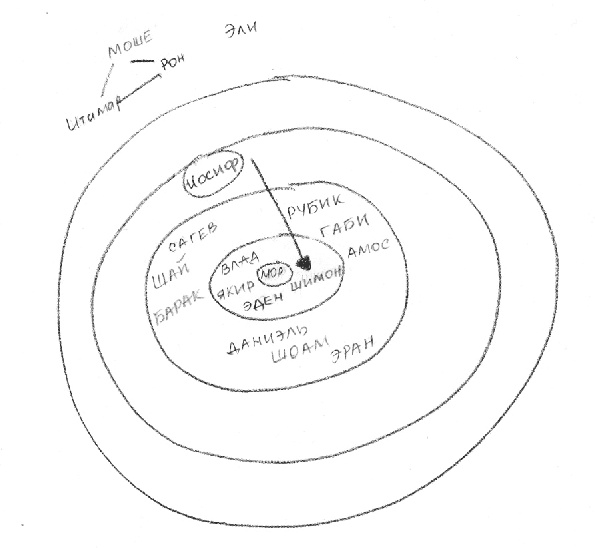 ЭЛИ
МОШЕ
РОН
Итимар
ИОСИФ
РУБИК
САГЕВ
ГАБИ
ВЛАД
АМОС
ШАЙ
МОР
ШИМОН
ЯКИР
БАРАК
ЭДЕН
ДАНИЭЛЬ
ШОАМ
ЭРАН